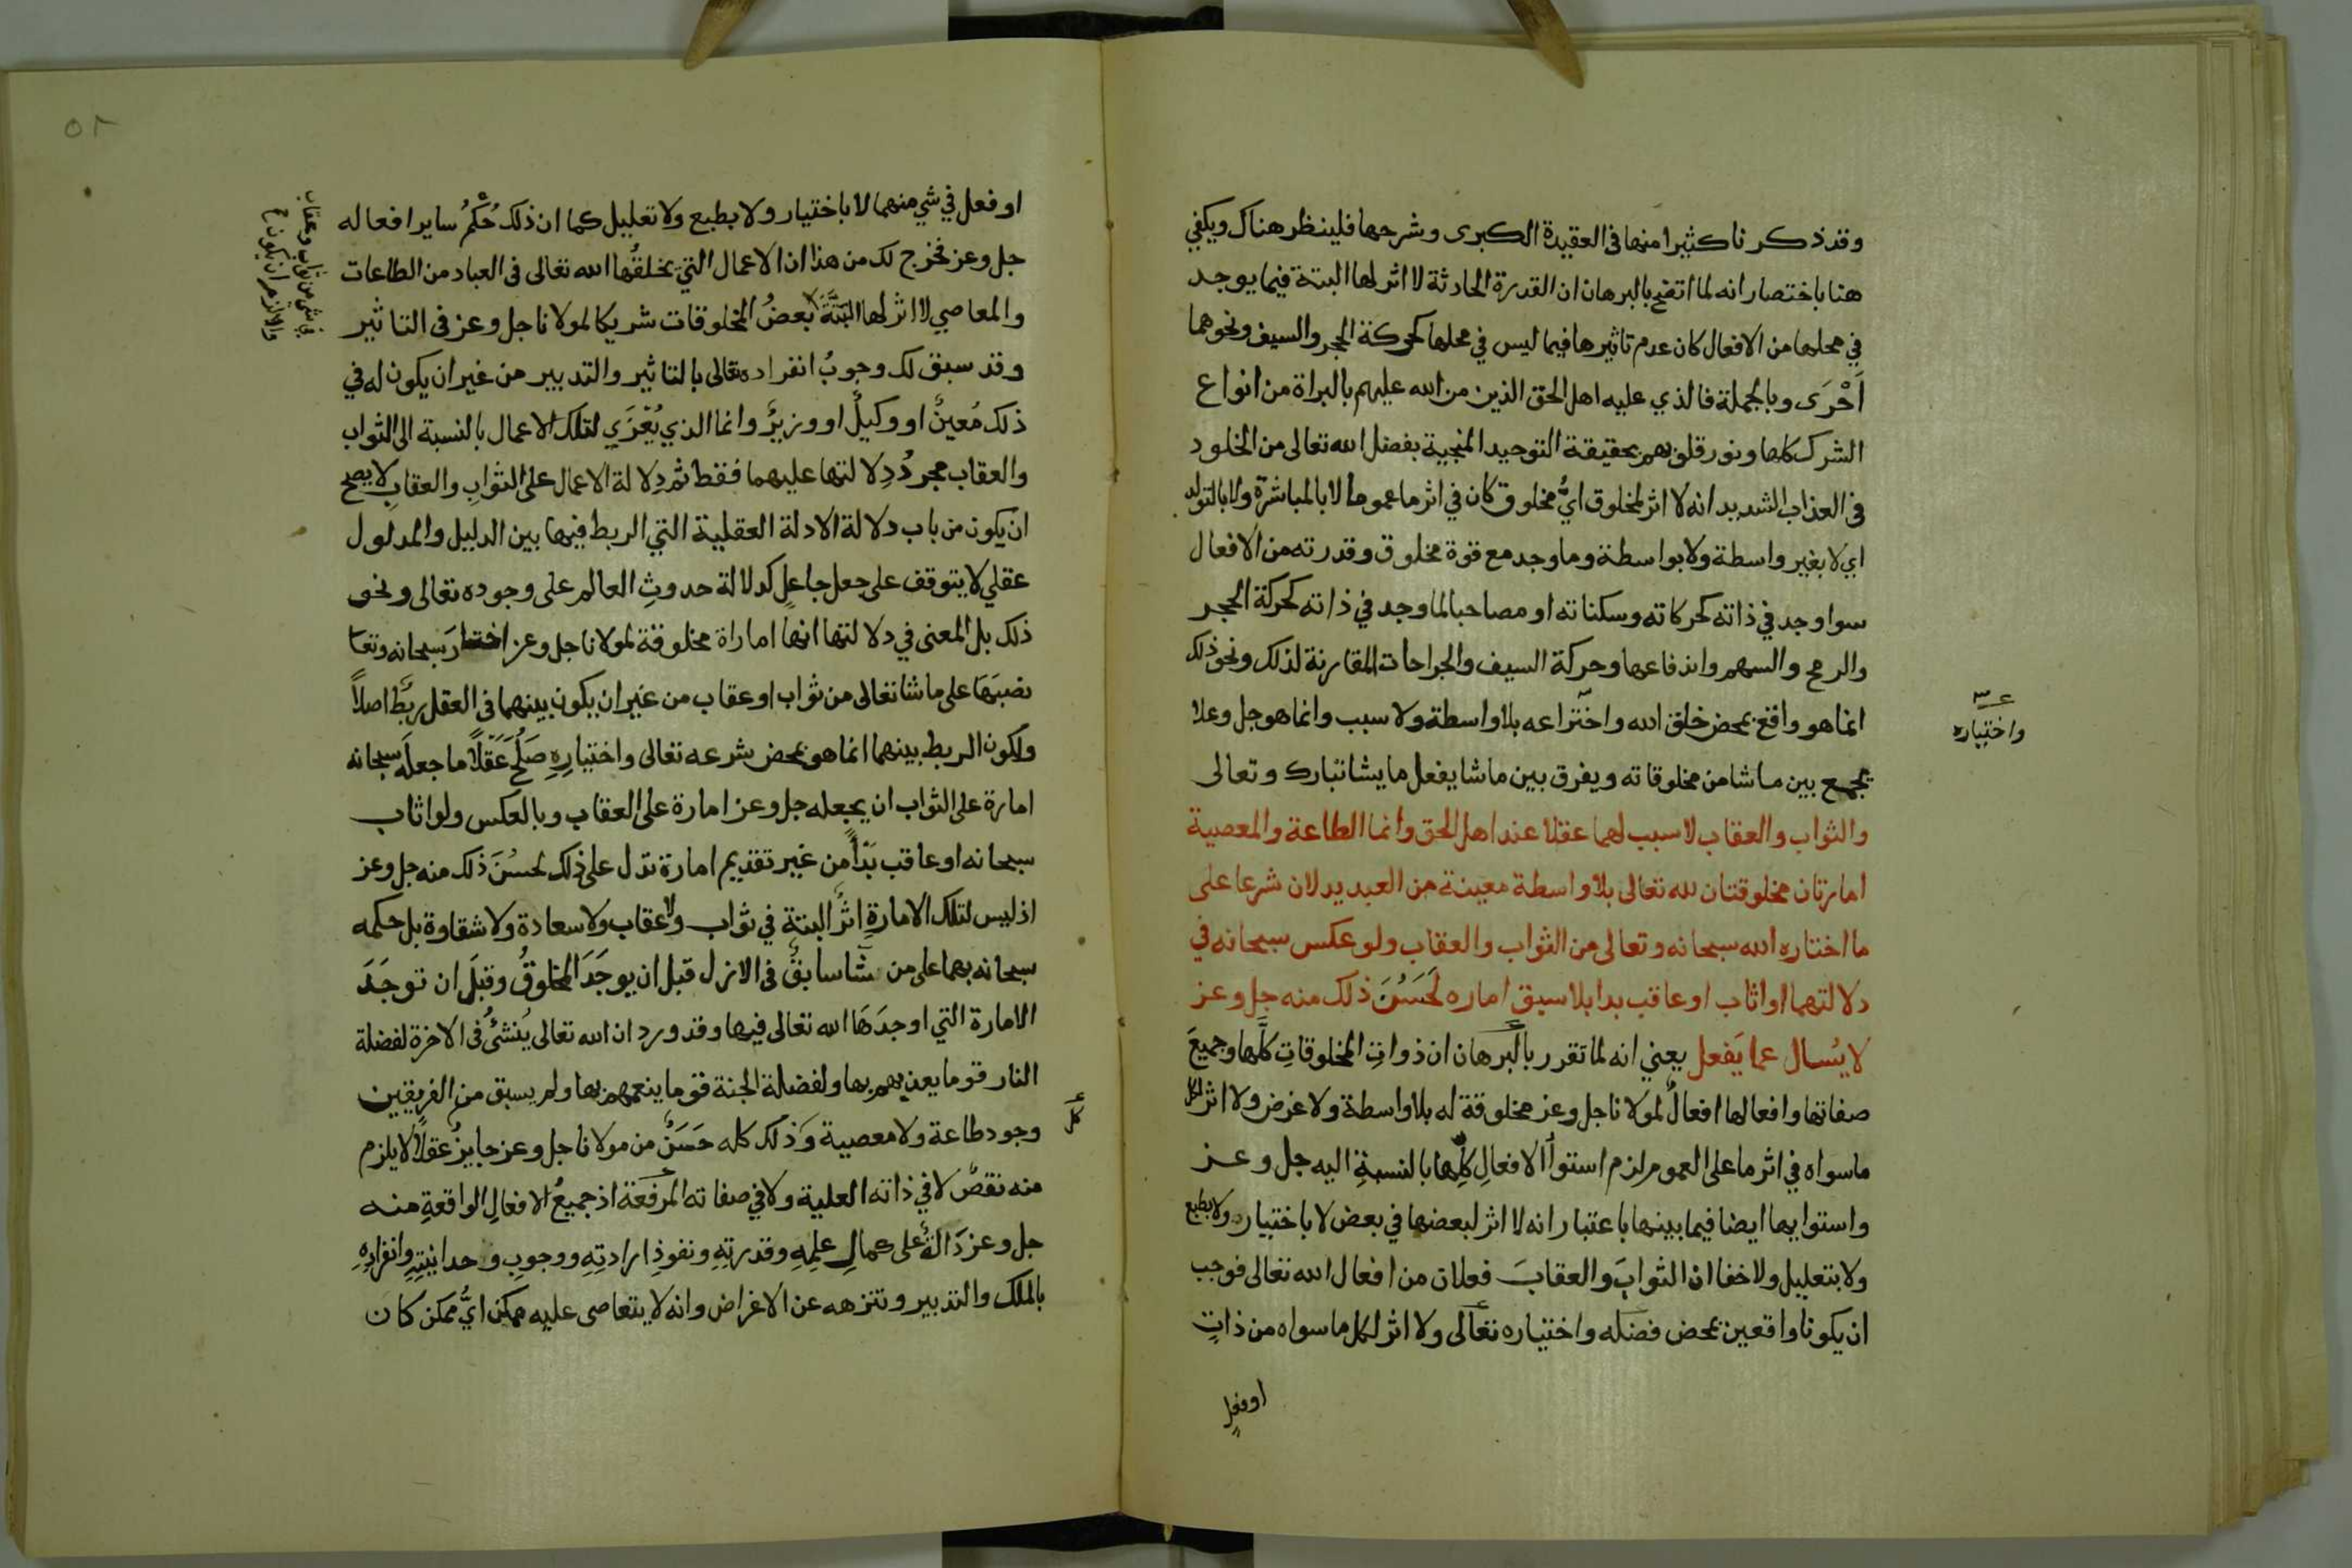 وقد ذكرنا كثيرا منها في العقيدة الكبرى وشرحها فلينظر هناك ويكفي
هنا باختصار انه لما اتضح بالبرهان ان القدرة الحادثة لا اثر لها البتة فيما يوجد
في محلها من الافعال كان عدم تاثيرها فيما ليس في محلها كحركة الحجر والسيف ونحوهما
اَحْرَى وبالجملة فالذي عليه اهل الحق الذين من الله عليهم بالبراة من انواع
الشرك كلها ونور قلوبهم بحقيقة التوحيد المنجية بفضل الله تعالى من الخلود
في العذاب الشديد انه لا اثر لمخلوق ايُّ مخلوق كان في اثر ما عموما لا بالمباشرة ولا بالتولد
اي لا بغير واسطة ولا بواسطة وما وجد مع قوة مخلوق وقدرته من الافعال
سوا وجد في ذاته كحركاته وسكناته او مصاحبا لما وجد في ذاته كحركة الحجر
والرمح والسهم واندفاعها وحركة السيف والجراحات المقارنة لذلك ونحو ذلك
انما هو واقع بمحض خلق الله واختراعه بلا واسطة ولا سبب وانما هو جل وعلا
واختياره
يجمع بين ما شا من مخلوقاته ويفرق بين ما شا يفعل ما يشا تبارك وتعالى
والثواب والعقاب لا سبب لهما عقلا عند اهل الحق وانما الطاعة والمعصية
امارتان مخلوقتان لله تعالى بلا واسطة معينة من العبد يدلان شرعا على
ما اختاره الله سبحانه وتعالى من الثواب والعقاب ولو عكس سبحانه في
دلالتهما او اثاب او عاقب بدا بلا سبق اماره لَحَسُنَ ذلك منه جل وعز
لا يُسال عما يَفعل يعني انه لما تقرر بالبرهان ان ذواتِ المخلوقاتِ كلَّها وجميعَ
صفاتها وافعالها افعالٌ لمولانا جل وعز مخلوقة له بلا واسطة ولا غرض ولا اثر لكل
ما سواه في اثر ما على العموم لزم استوآ الافعالِ كلِّها بالنسبةِ اليه جل وعز
واستوايها ايضا فيما بينها باعتبار انه لا اثر لبعضها في بعض لا باختيار ولا بطبع
ولا بتعليل ولا خفا ان الثوابَ والعقابَ فعلان من افعال الله تعالى فوجب
ان يكونا واقعين بمحض فضله واختياره تعالى ولا اثر لكل ما سواه من ذاتٍ
او فعلٍ
٥٨
او فعل في شي منهما لا باختيار ولا بطبع ولا تعليل كما ان ذلك حُكمُ ساير افعاله
جل وعز فخرج لك من هذا ان الاعمال التي يخلقُها الله تعالى في العباد من الطاعات
والمعاصي لا اثر لها البَتَّةَ بعضُ المخلوقات شريكا لمولانا جل وعز في التاثير
في شي من ثواب وعقاب
والا لزم ان يكون
وقد سبق لك وجوبُ انفراده تعالى بالتاثير والتدبير من غير ان يكون له في
ذلك مُعينٌ او وكيلٌ او وزيرٌ وانما الذي يُعْزَي لتلك الاعمال بالنسبة الى الثواب
والعقاب مجردُ دِلالتها عليهما فقط ثم دِلالة الاعمال على الثوابِ والعقابِ لا يصح
ان يكون من باب دلالة الادلة العقلية التي الربط فيها بين الدليل والمدلول
عقلي لا يتوقف على جعل جاعلٍ كدلالة حدوثِ العالم على وجوده تعالى ونحو
ذلك بل المعنى في دلالتها انها اماراة مخلوقة لمولانا جل وعز اختارَ سبحانه وتعا
نصبَهَا على ما شا تعالى من ثواب او عقاب من غير ان يكون بينهما في العقل ربْط اصلاً
ولكون الربط بينهما انما هو بمحض شرعه تعالى واختيارِهِ صَلُحَ عَقْلًا ما جعله سبحانه
امارة على الثواب ان يجعله جل وعز امارة على العقاب وبالعكس ولو اثاب
سبحانه او عاقب بَدْأً من غير تقديم امارة تدل على ذلك لحسُنَ ذلك منه جل وعز
اذ ليس لتلك الامارةِ اثرٌ البتة في ثواب ولا عقاب ولا سعادة ولا شقاوة بل حكمه
سبحانه بهما على من شا سابقٌ في الازل قبل ان يوجَدَ المخلوقُ وقبلَ ان توجَدَ
الامارة التي اوجدَهَا الله تعالى فيها وقد ورد ان الله تعالى يُنشئُ في الاخرة لفضلة
النار قوما يعذبهم بها ولفضلة الجنة قوما ينعمهم بها ولم يسبق من الفريقين
كل
وجود طاعة ولا معصية وَذلك كله حَسَنٌ من مولانا جل وعز جايزٌ عقلاً لا يلزم
منه نقصٌ لا في ذاته العلية ولا في صفاته المرفعة اذ جميعُ الافعالِ الواقعةِ منه
جل وعز دَالةٌ على كمالِ علمِهِ وقدرتِهِ ونفوذِ ارادتِهِ ووجوبِ وحدانيتِهِ وانفرادِهِ
بالملك والتدبير وتنزهه عن الاغراض وانه لا يتعاصى عليه ممكن ايُّ ممكن كان